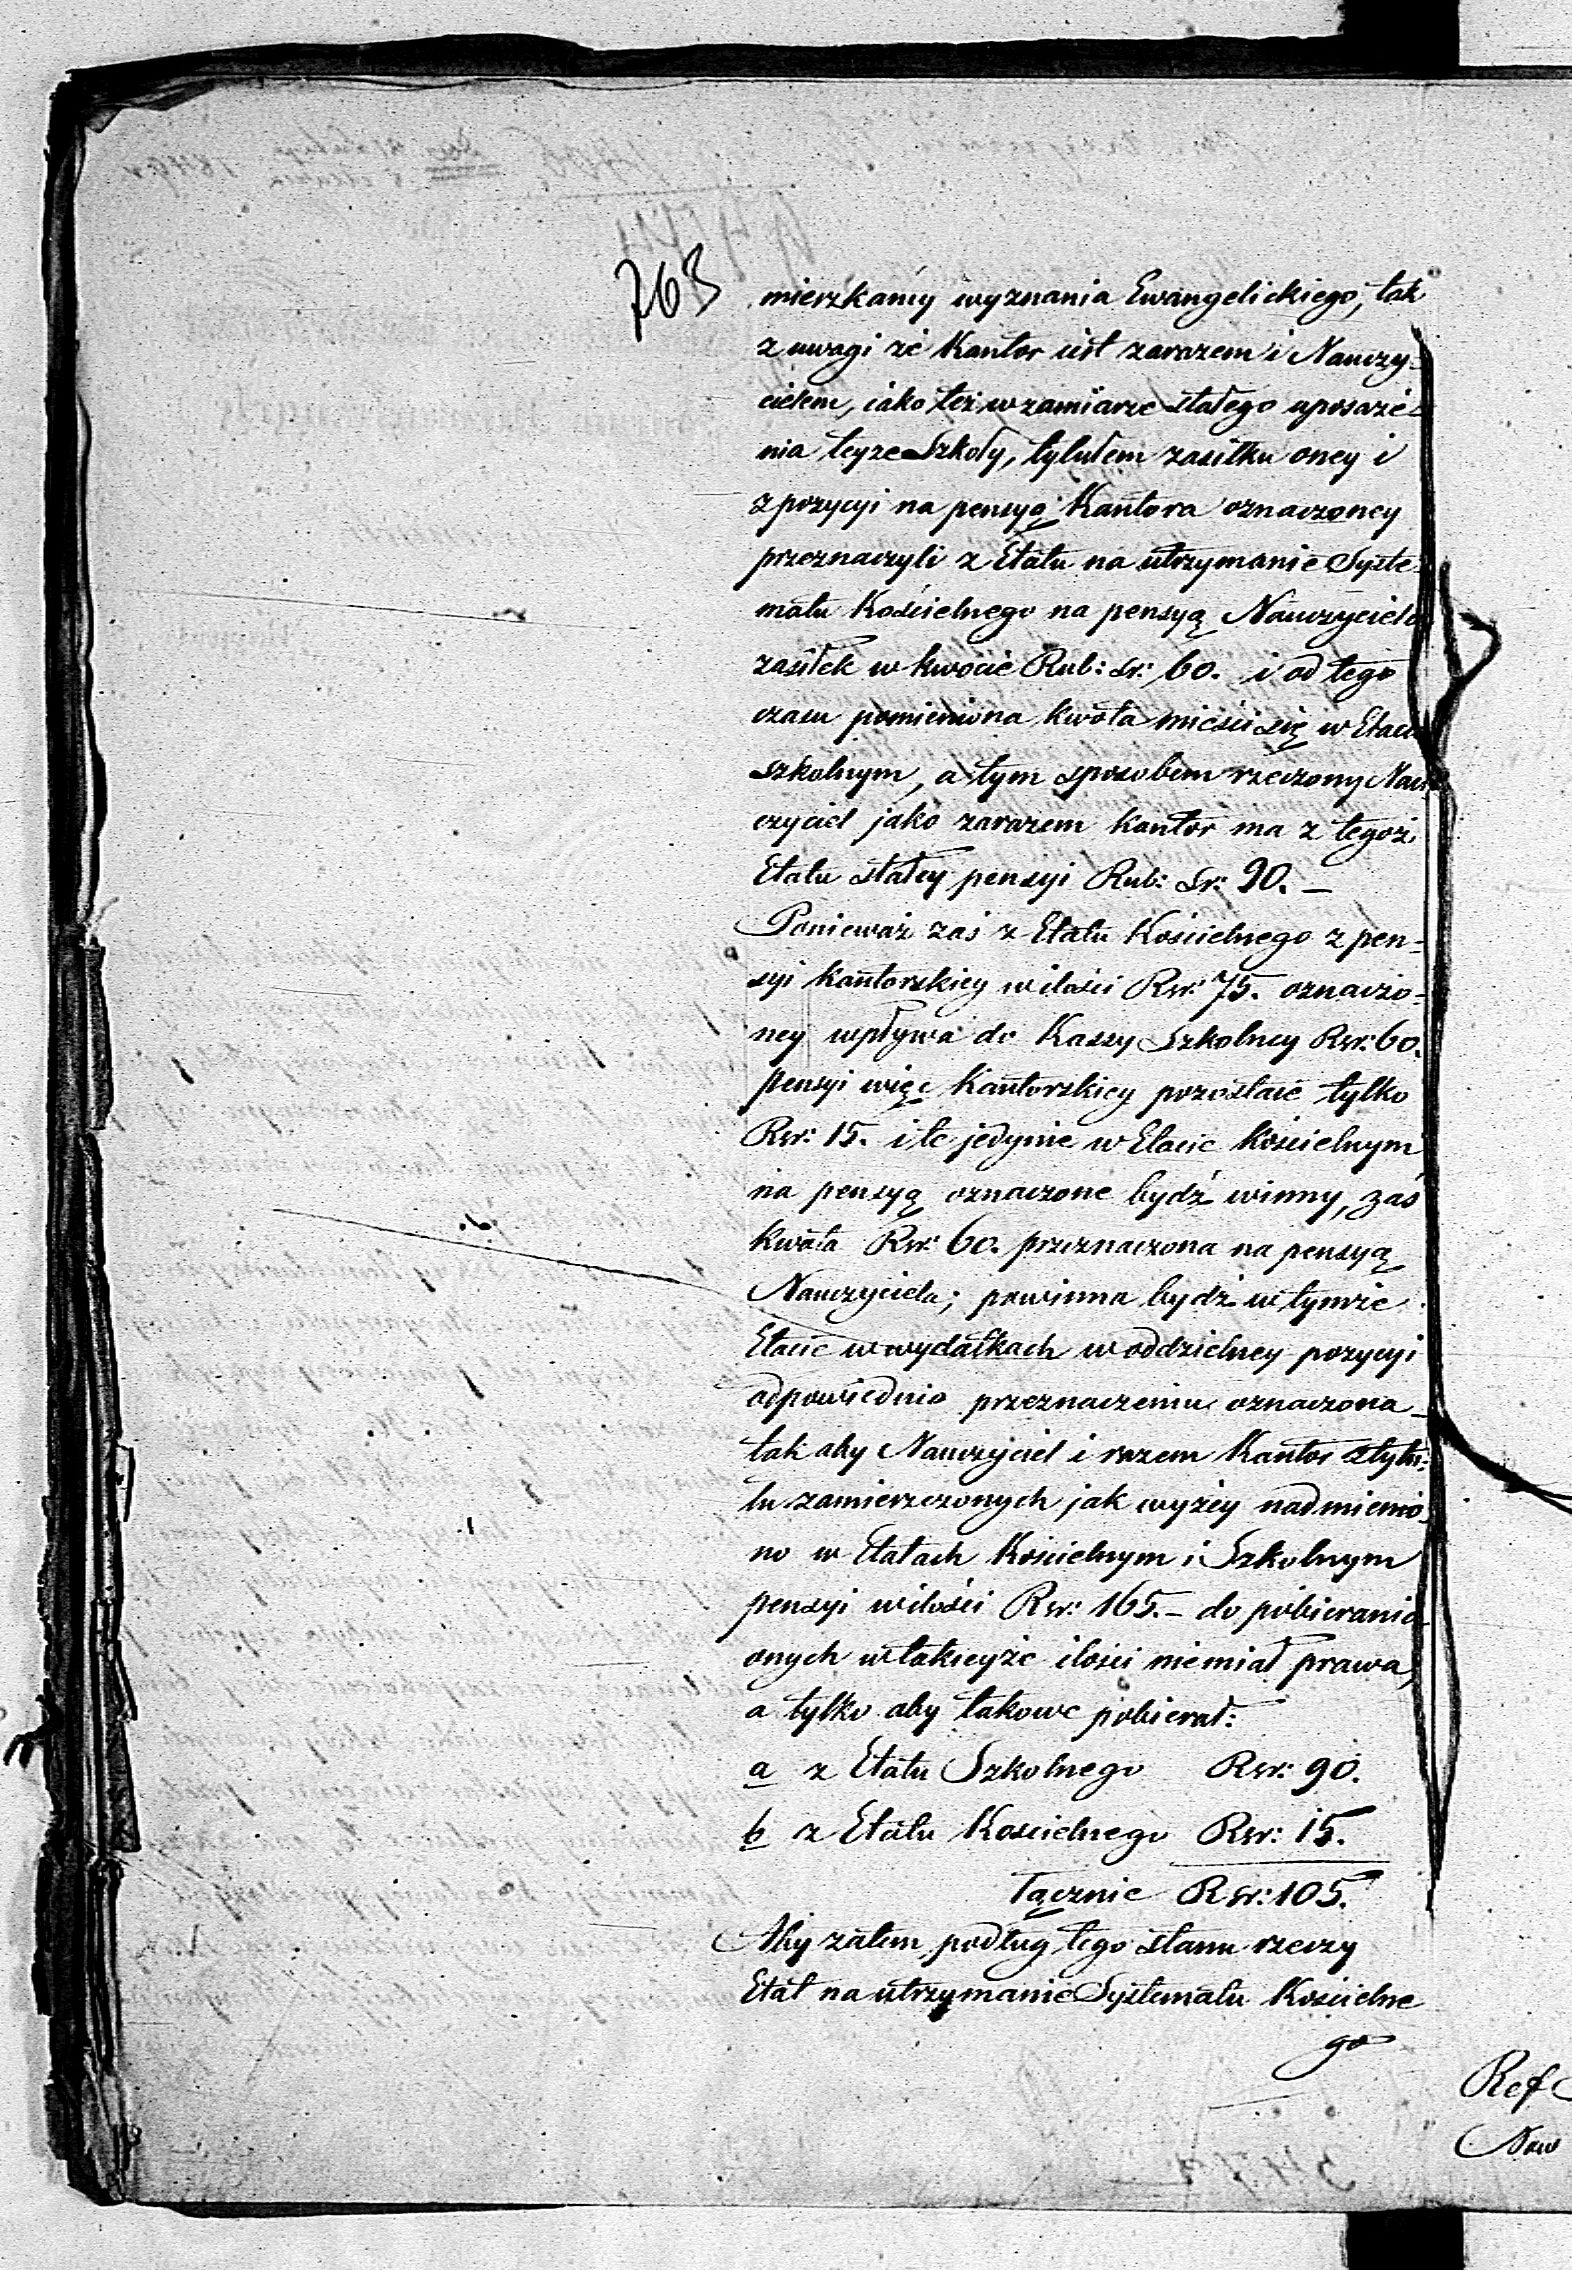 763
mieszkańcy wyznania Ewangelickiego, tak
z uwagi że Kantor iest zarazem i Nauczy-
cielem, iako też w zamiarze stałego uposaże-
nia teyże Szkoły, tytułem zasiłku oney i
z pozycyi na pensyą Kantora oznaczoney
przeznaczyli z Etatu na utrzymanie Syste-
matu Kościelnego na pensyą Nauczyciela
zasiłek w kwocie Rub: sr: 60. i od tego
czasu pomieniona kwota mieści się w Etacie
szkolnym, a tym sposobem rzeczony Nau-
czyciel jako zarazem Kantor ma z tegoż
Etatu stałey pensyi Rub: Sr: 90. —
Ponieważ zaś z Etatu Kościelnego z pen-
syi kantorskiey w ilości Rsr: 75. oznaczo-
ney wpływa do Kassy Szkolney Rsr: 60.
pensyi więc Kantorskiey pozostaie tylko
Rsr: 15. i te jedynie w Etacie kościelnym
na pensyą oznaczone bydź winny, zaś
kwota Rsr: 60. przeznaczona na pensyą
Nauczyciela; powinna bydź w tymże
Etacie w wydatkach w oddzielney pozycyi
odpowiednio przeznaczeniu oznaczona
tak aby Nauczyciel i razem Kantor z tytu-
łu zamierzczonych jak wyżey nadmienio-
no w Etatach Kościelnym i Szkolnym
pensyi w ilości Rsr: 165. — do pobierania
onych w takieyże ilości niemiał prawa,
a tylko aby takowe pobierał:
a z Etatu Szkolnego Rsr: 90.
b z Etatu Kościelnego Rsr: 15.
łącznie Rsr: 105.
Aby zatem podług tego stanu rzeczy
Etat na utrzymanie Systematu Kościelne
go
Ref
Naw